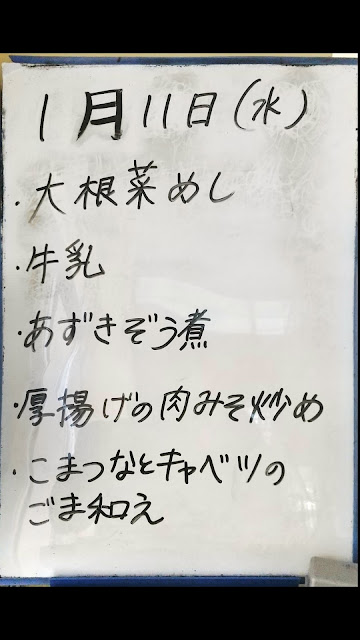 1月11日(水)
・大根菜めし
・牛乳
・あずきぞう煮
・厚揚げの肉みそ炒め
・こまつなとキャベツの
ごま和え